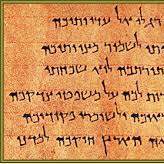 רגלי אל עדוותיכה
לשמור מצוותיכה
תורתכה לוא שכחתי
לכה על משפטי צדקכה
ולשומרי פקודיכה
הארץ חוקיכה למדני